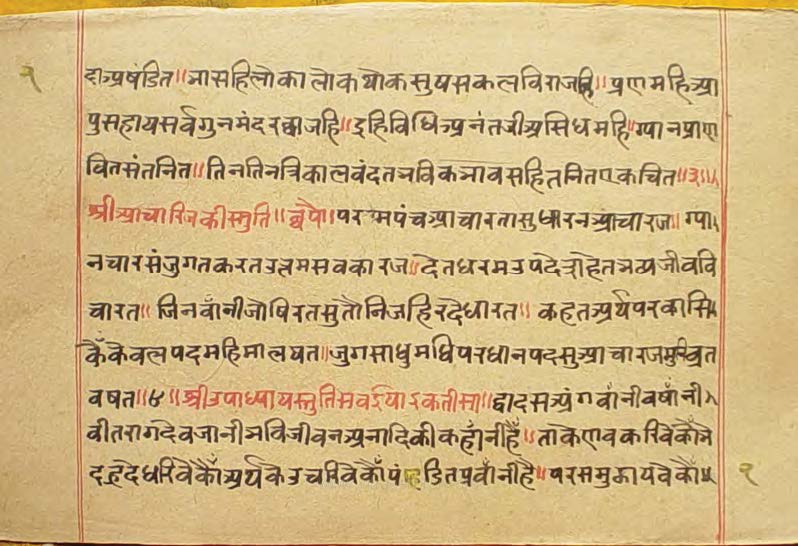 दाप्रषंडित॥ भासहिलोकालोकथोकसुषसकलविराजहि॥ प्रणमहिआ
पुसहायसर्वगुनमंदरछाजहि॥ इहिविधिअनंतजीअसिधमहिग्यानप्राण
वितसंतनित॥ तिनतिनत्रिकालवंदतभविकभावसहितनितएकचित॥३॥
श्रीआचारिजकीस्तुति॥ छपै॥ परमपंचआचारतासुधारनआचारज॥ ग्या
नचारसंजुगतकरतउत्तमसवकारज॥ देतधरमउपदेशहेतभव्यजीववि
चारत॥ जिनवांनीजोषिरतसुतौनिजहिरदेधारत॥ कहतअर्थपरकासि
कैंकेवलपदमहिमालषत॥ जुगसाधुमधिपरधानपदसुआचारजमुषिव्रत
वषत॥४॥ श्रीउपाध्यायस्तुतिसवईयाइकतीसा॥ द्वादसअंगवांनीवषांनी
वीतरागदेवजानीभविजीवनअनादिकीकहांनीहैं॥ ताकेपावकरिवेकौंभे
दहृदेधरिवेकौंअर्थकेउचरिवेकौंपंडितप्रवांनीहै॥ परसमुझायवेकौं
२